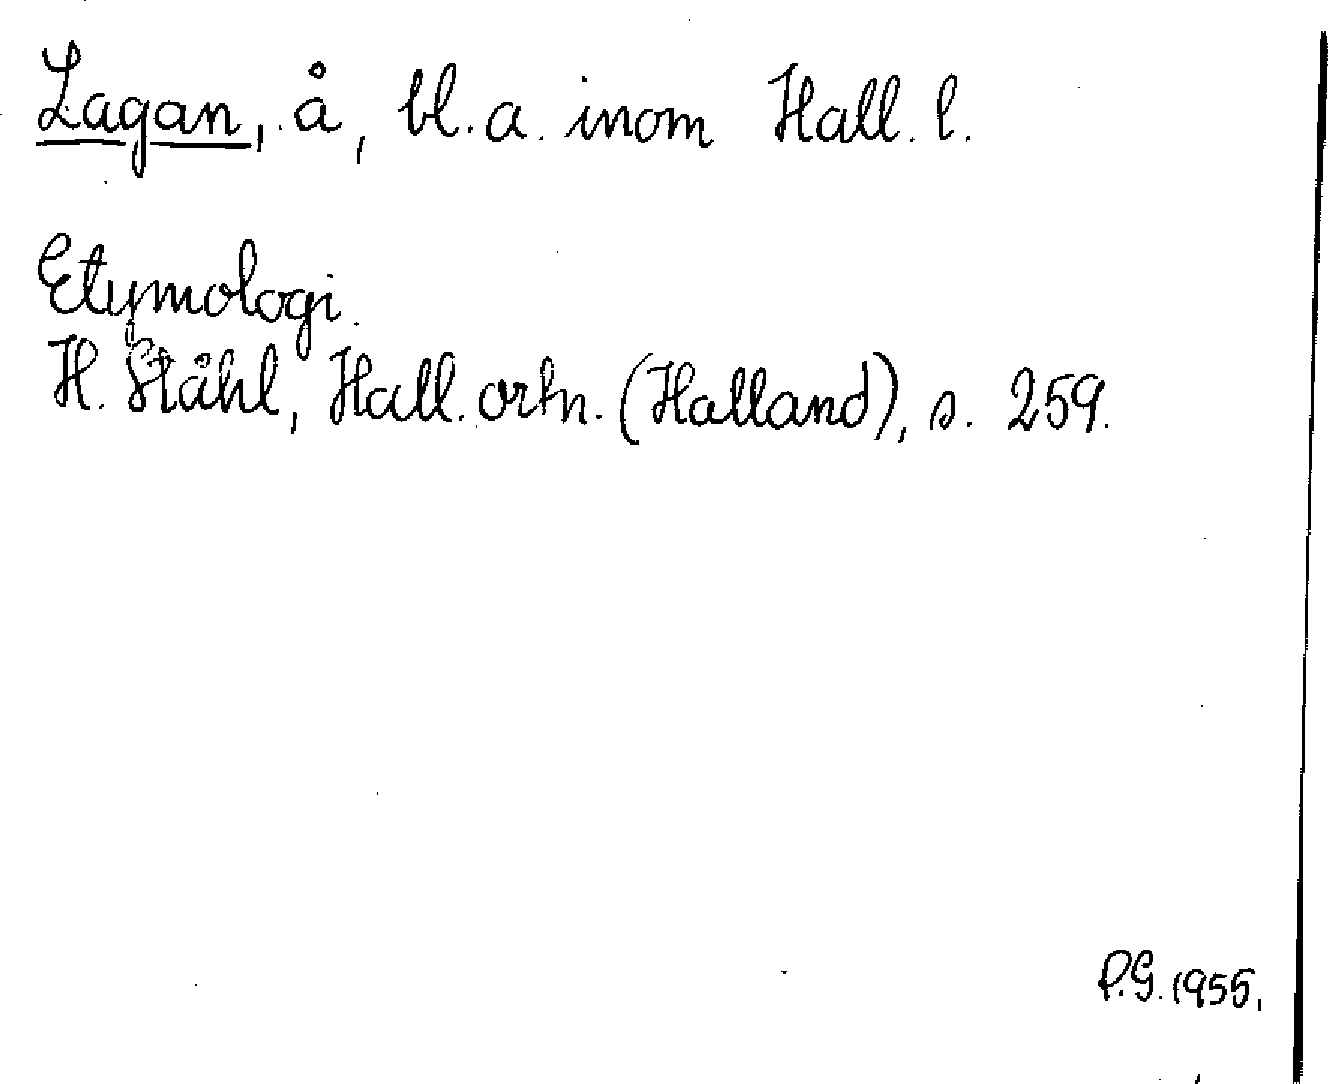 Lagan, å, bl. a. inom Hall. l.
Etymologi.
H. Ståhl, Hall. ortn. (Halland), s. 259.
P.G. 1955.